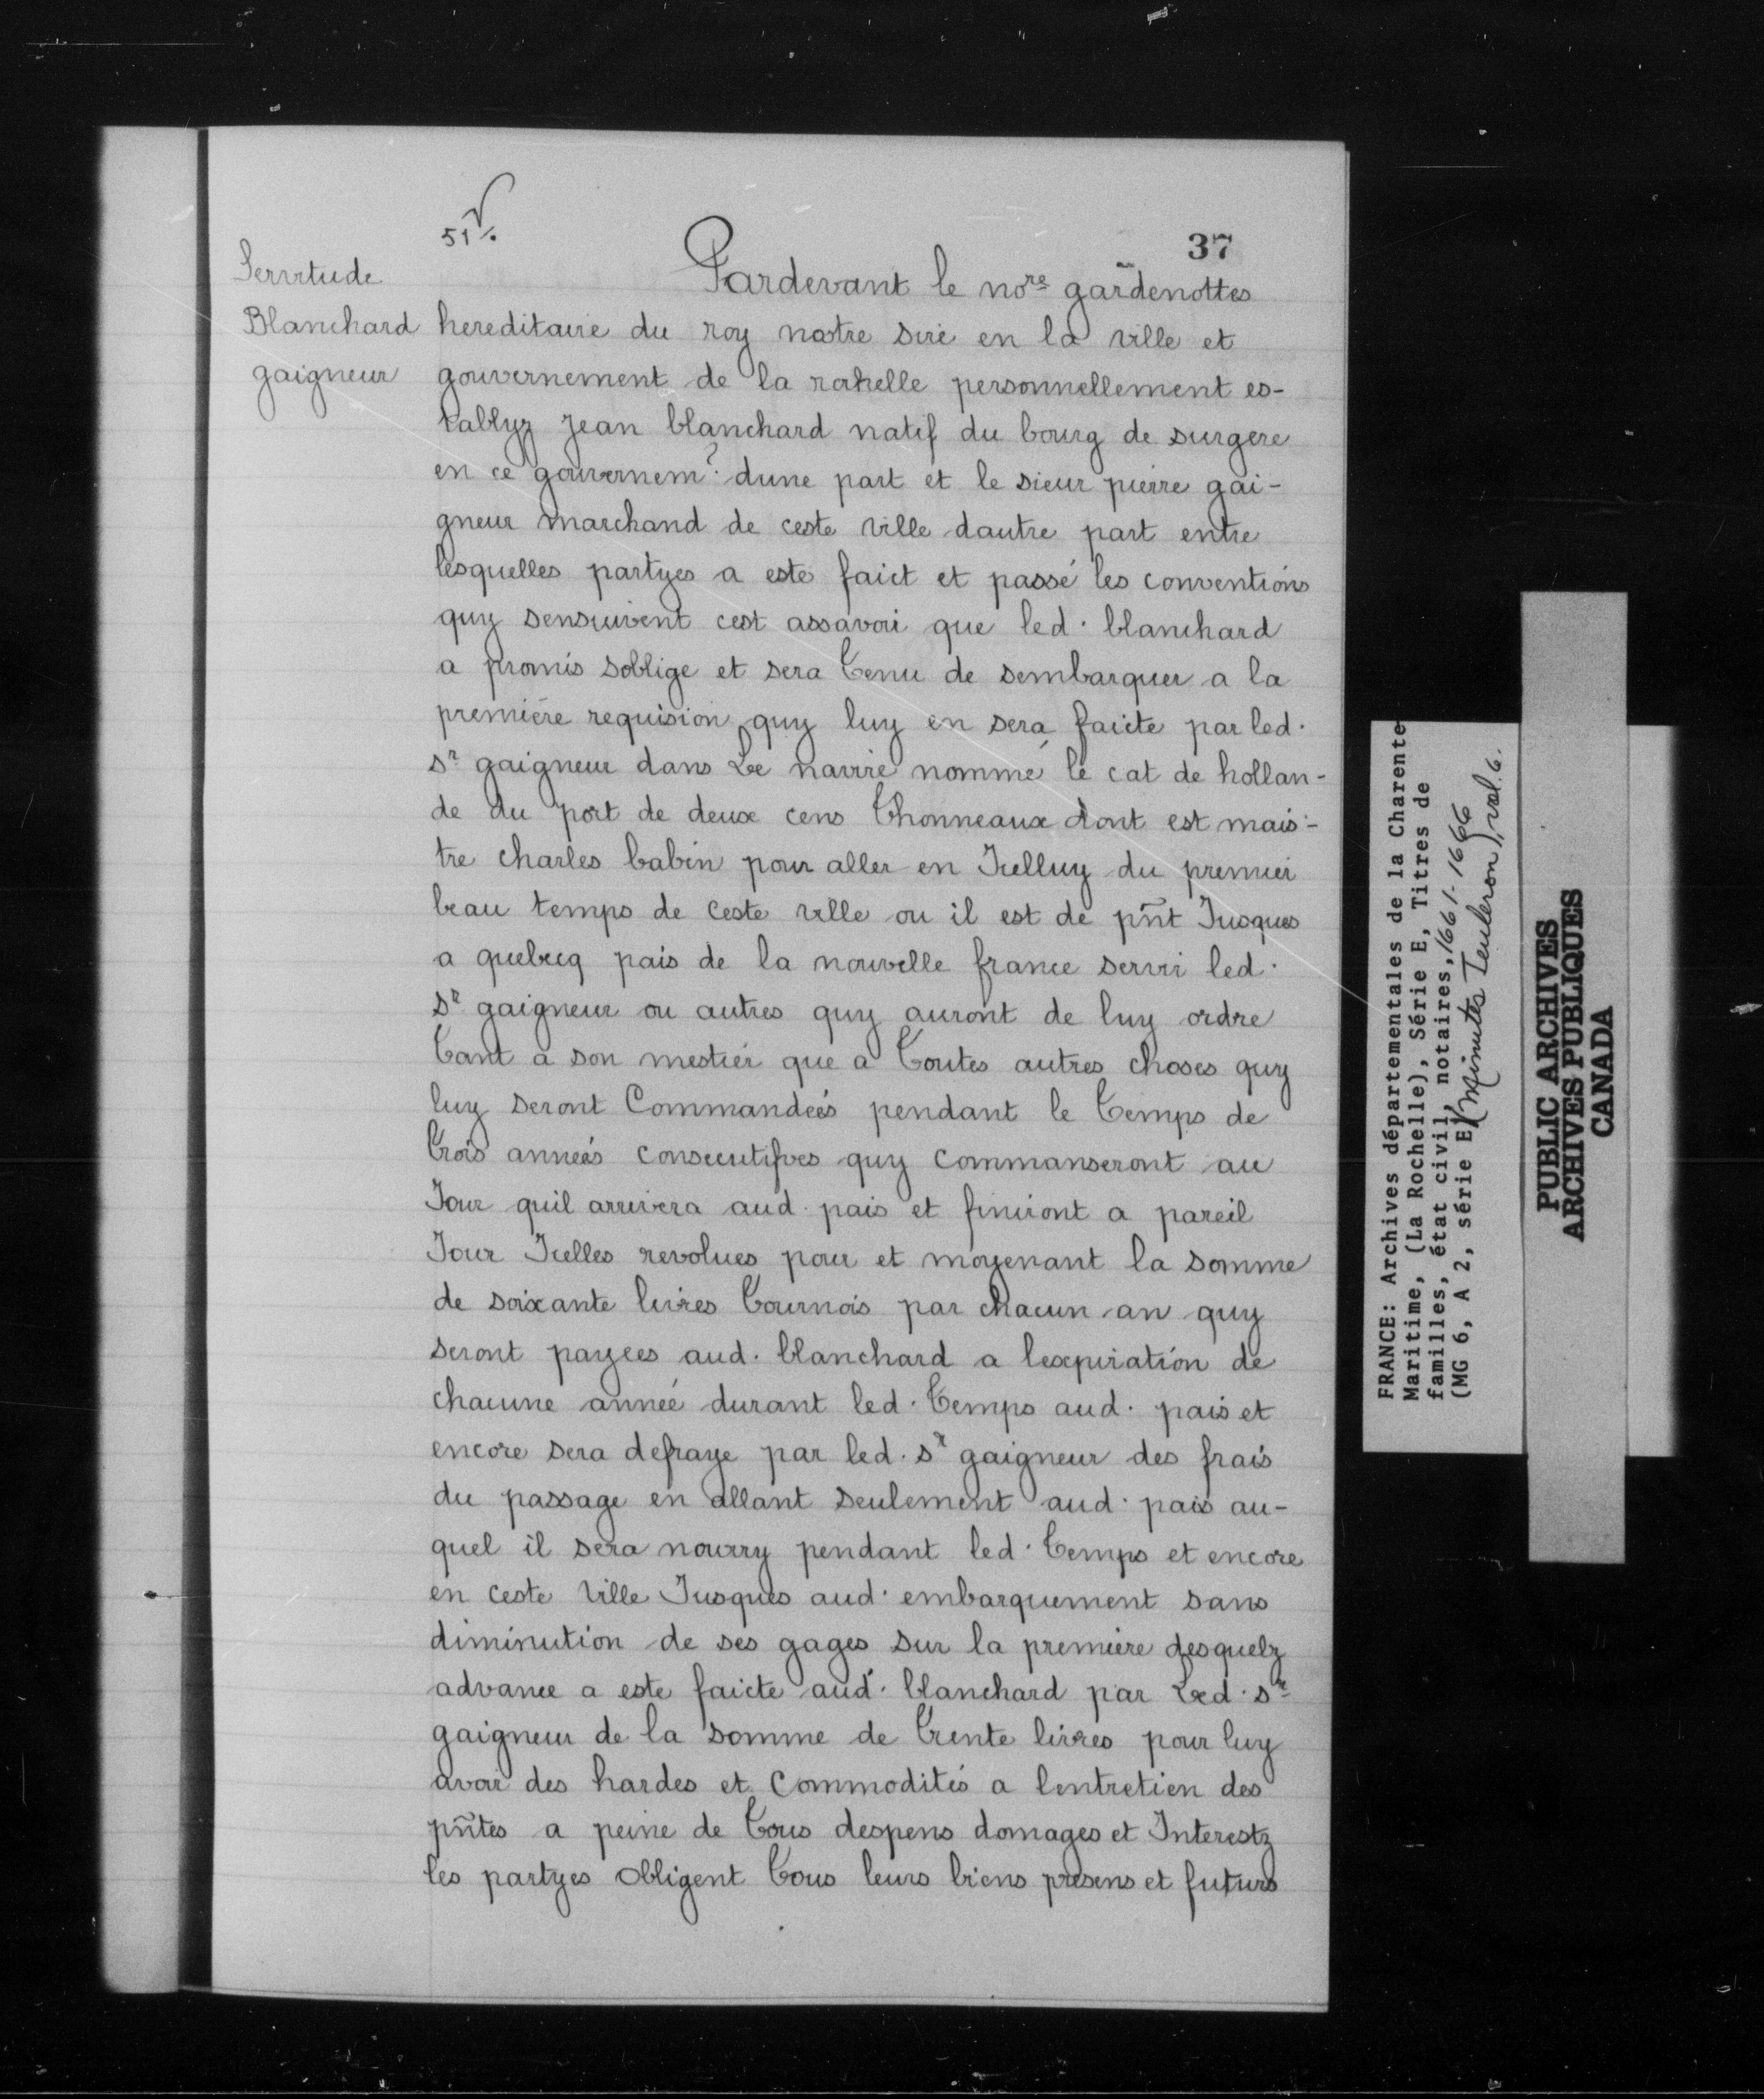 51 v.
37
Servitude
Blanchard
gaigneur
Pardevant le no.re gardenottes
hereditaire du roy notre sire en la ville et
gouvernement de la rochelle personnellement es-
tablyz Jean blanchard natif du bourg de surgere
en ce gouvernem.t dune part et le sieur pierre gai-
gneur marchand de ceste ville dautre part entre
lesquelles partyes a este faict et passé les conventions
quy sensuivent cest assavoir que led. blanchard
a promis soblige et sera tenu de sembarquer a la
première requision quy luy en sera faicte par led.
sr gaigneur dans Le navire nommé le cat de hollan-
de du port de deux cens thonneaux dont est mais-
tre charles babin pour aller en Icelluy du premier
beau temps de ceste ville ou il est de pñt Jusques
a quebecq pais de la nouvelle france servir led.
sr gaigneur ou autres quy auront de luy ordre
tant a son mestier que a toutes autres choses quy
luy seront Commandeés pendant le temps de
trois anneés consecutifves quy commanseront au
Jour quil arrivera aud. pais et finiront a pareil
Jour Icelles revolues pour et moyenant la somme
de soixante livres tournois par chacun an quy
seront payees aud. blanchard a lexpiration de
chacune anneé durant led. temps aud. pais et
encore sera defraye par led. sr gaigneur des frais
du passage en allant seulement aud. pais au-
quel il sera nourry pendant led. temps et encore
en ceste ville Jusques aud. embarquement sans
diminution de ses gages sur la première desquelz
advance a este faicte aud. blanchard par Led. sr
gaigneur de la somme de trente livres pour luy
avoir des hardes et Commodités a lentretien des
pñtes a peine de tous despens domages et Interestz
les partyes obligent tous leurs biens presens et futurs
FRANCE: Archives départementales de la Charente
Maritime, (La Rochelle), Série E, Titres de
familles, état civil, notaires, 1661-1666
(MG 6, A 2, série E) (Minutes Teuleron), vol. 6.
PUBLIC ARCHIVES
ARCHIVES PUBLIQUES
CANADA